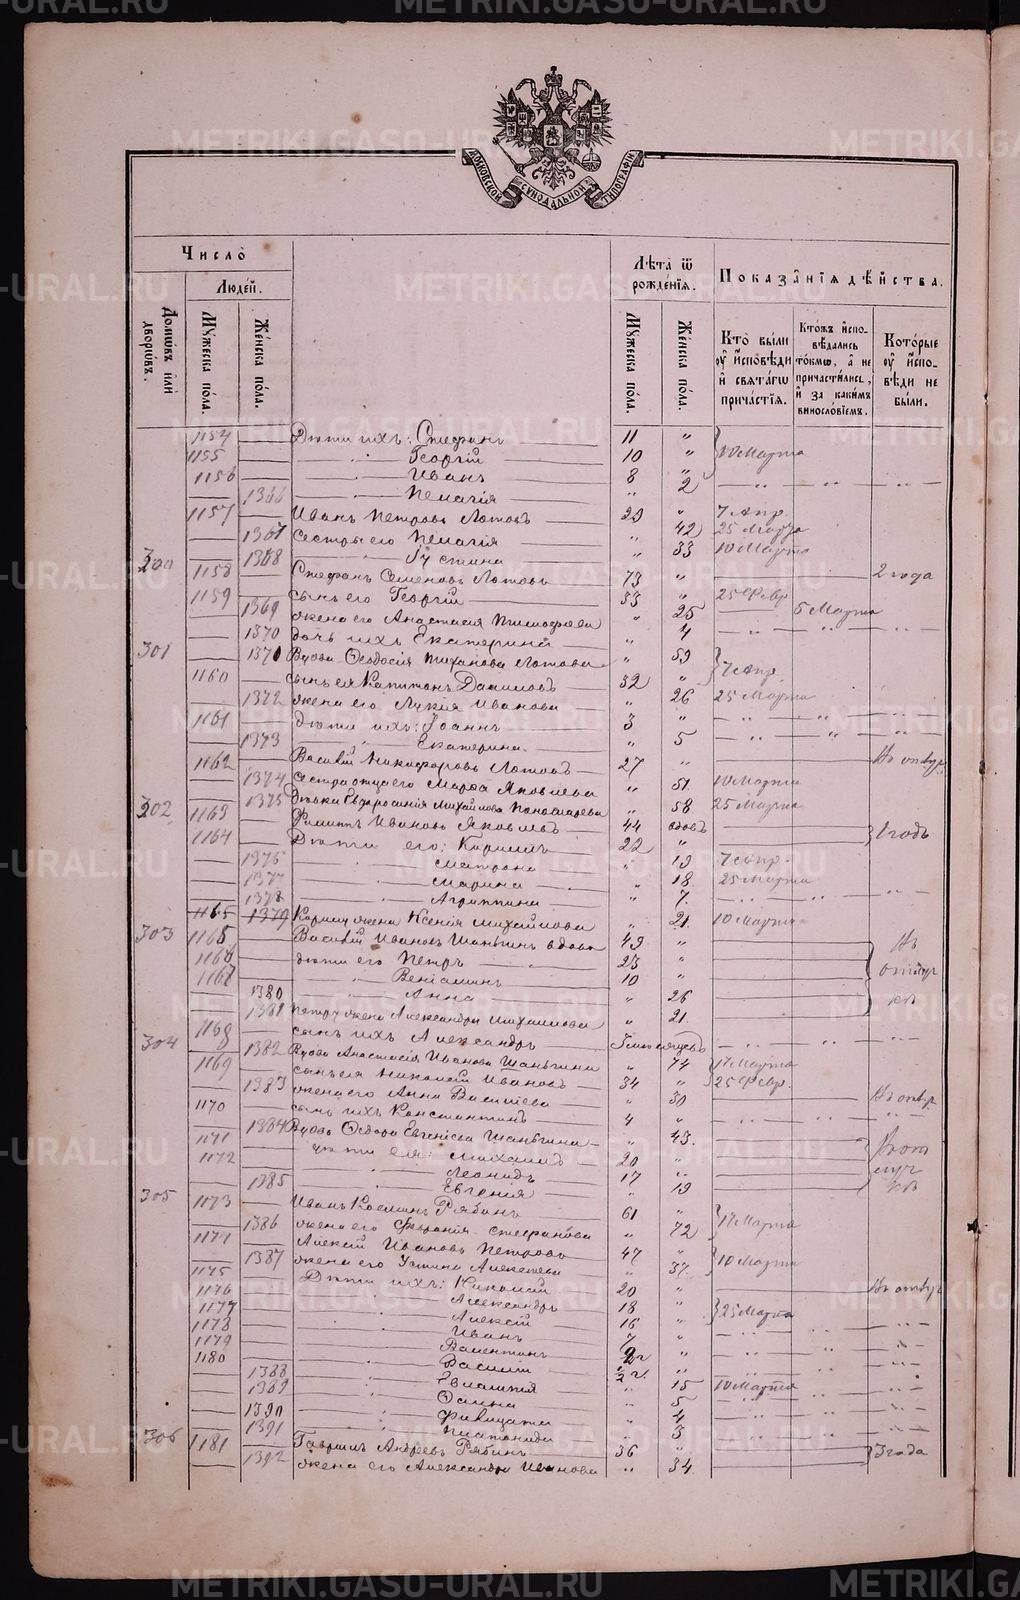 МОСКОВСКОЙ СУНОДАЛЬНОЙ ТИПОГРАФІИ
Число
Людей.
Домѡвъ или дворѡвъ.
Мꙋжеска пола.
Женска пола.
Лѣта ѿ рожденїѧ.
Мꙋжеска пола.
Женска пола.
Показанїѧ дѣйства.
Кто были оу исповѣди и свѧтагѡ причастїѧ.
Ктожъ исповѣдались токмѡ, а не причастились, и за какимъ винословїемъ.
Которые оу исповѣди не были.
1154 Дѣти ихъ: Стефанъ 11 „
1155 Георгій 10 „ 10 Марта
1156 Иванъ 8 „
1366 Пелагія „ 2
1157 Иванъ Петровъ Лотовъ 29 „ 7 Апр.
1367 Сестры его Пелагія „ 42 25 Марта
1368 Іустина „ 33 10 Марта
300 1158 Стефанъ Семеновъ Лотовъ 73 „ 2 года
1159 Сынъ его Георгій 33 „ 25 Февр.
1369 жена его Анастасія Тимофеева „ 25 5 Марта
1370 дочь ихъ Екатерина „ 4
301 1370 Вдова Ѳеодосія Лотова „ 59 7 Апр.
1160 Сынъ ея Капитонъ Даниловъ 32 „
1372 жена его Лукія Иванова „ 26 25 Марта
1161 дѣти ихъ: Іоаннъ 3 „
1373 Екатерина „ 5
1162 Василій Никифоровъ Лотовъ 27 „ Въ отлуч.
1374 Сестра отца его Марѳа Яковлева „ 51 10 Марта
1375 Дѣвка Евфросинія Михайлова Пономарева „ 58 25 Марта
302 1163 Филиппъ Ивановъ Яковлевъ 44 вдовъ
1164 Дѣти его: Кириллъ 22 „ 1 годъ
1376 Матрона „ 19 7 Апр.
1377 Марина „ 18 25 Марта
1378 Агриппина „ 7
1165 1379 Кирил. жена Ксенія Михайлова „ 21 10 Марта
303 1165 Василій Ивановъ Шаньгинъ вдовъ 49 „ Въ
1166 дѣти его Петръ 23 „ отлуч
1167 Веніаминъ 10 „ кѣ
1380 Анна „ 26
1381 Петру жена Александра Михаилова „ 21
1168 Сынъ ихъ Александръ
304 1382 Вдова Анастасія Иванова Шаньгина „ 74 17 Марта
1169 Сынъ ея Николай Ивановъ 34 „ 25 Февр.
1383 жена его Анна Василіева „ 30 Въ отлуч.
1170 Сынъ ихъ Константинъ 4 „
1384 Вдова Ѳедора Евгеніева Шаньгина „ 43
1171 дѣти ея: Михаилъ 20 „
1172 Леонидъ 17 „
1385 Евгенія „ 19
305 1173 Иванъ Козминъ Рябинъ 61 „ 17 Марта
1386 жена его Стефанова „ 72
1174 Алексій Ивановъ Петровъ 47 „ 10 Марта
1387 жена его Устина Алексѣева „ 37
1175 Дѣти ихъ: Николай 20 „ Въ отлуч.
1176 Александръ 18 „ 25 Марта
1177 Алексій 16 „
1178 Иванъ 7 „
1179 Валентинъ 2 г. „
1180 Василій
1388 Евлампія „ 15 10 Марта
1389 „ 5
1390 Фивицата „ 4
1391 Платонида „ 3
306 1181 Гавріилъ Андреевъ Рябинъ 36 „ 3 года
1392 жена его Александра Иванова „ 34
METRIKI.GASO-URAL.RU